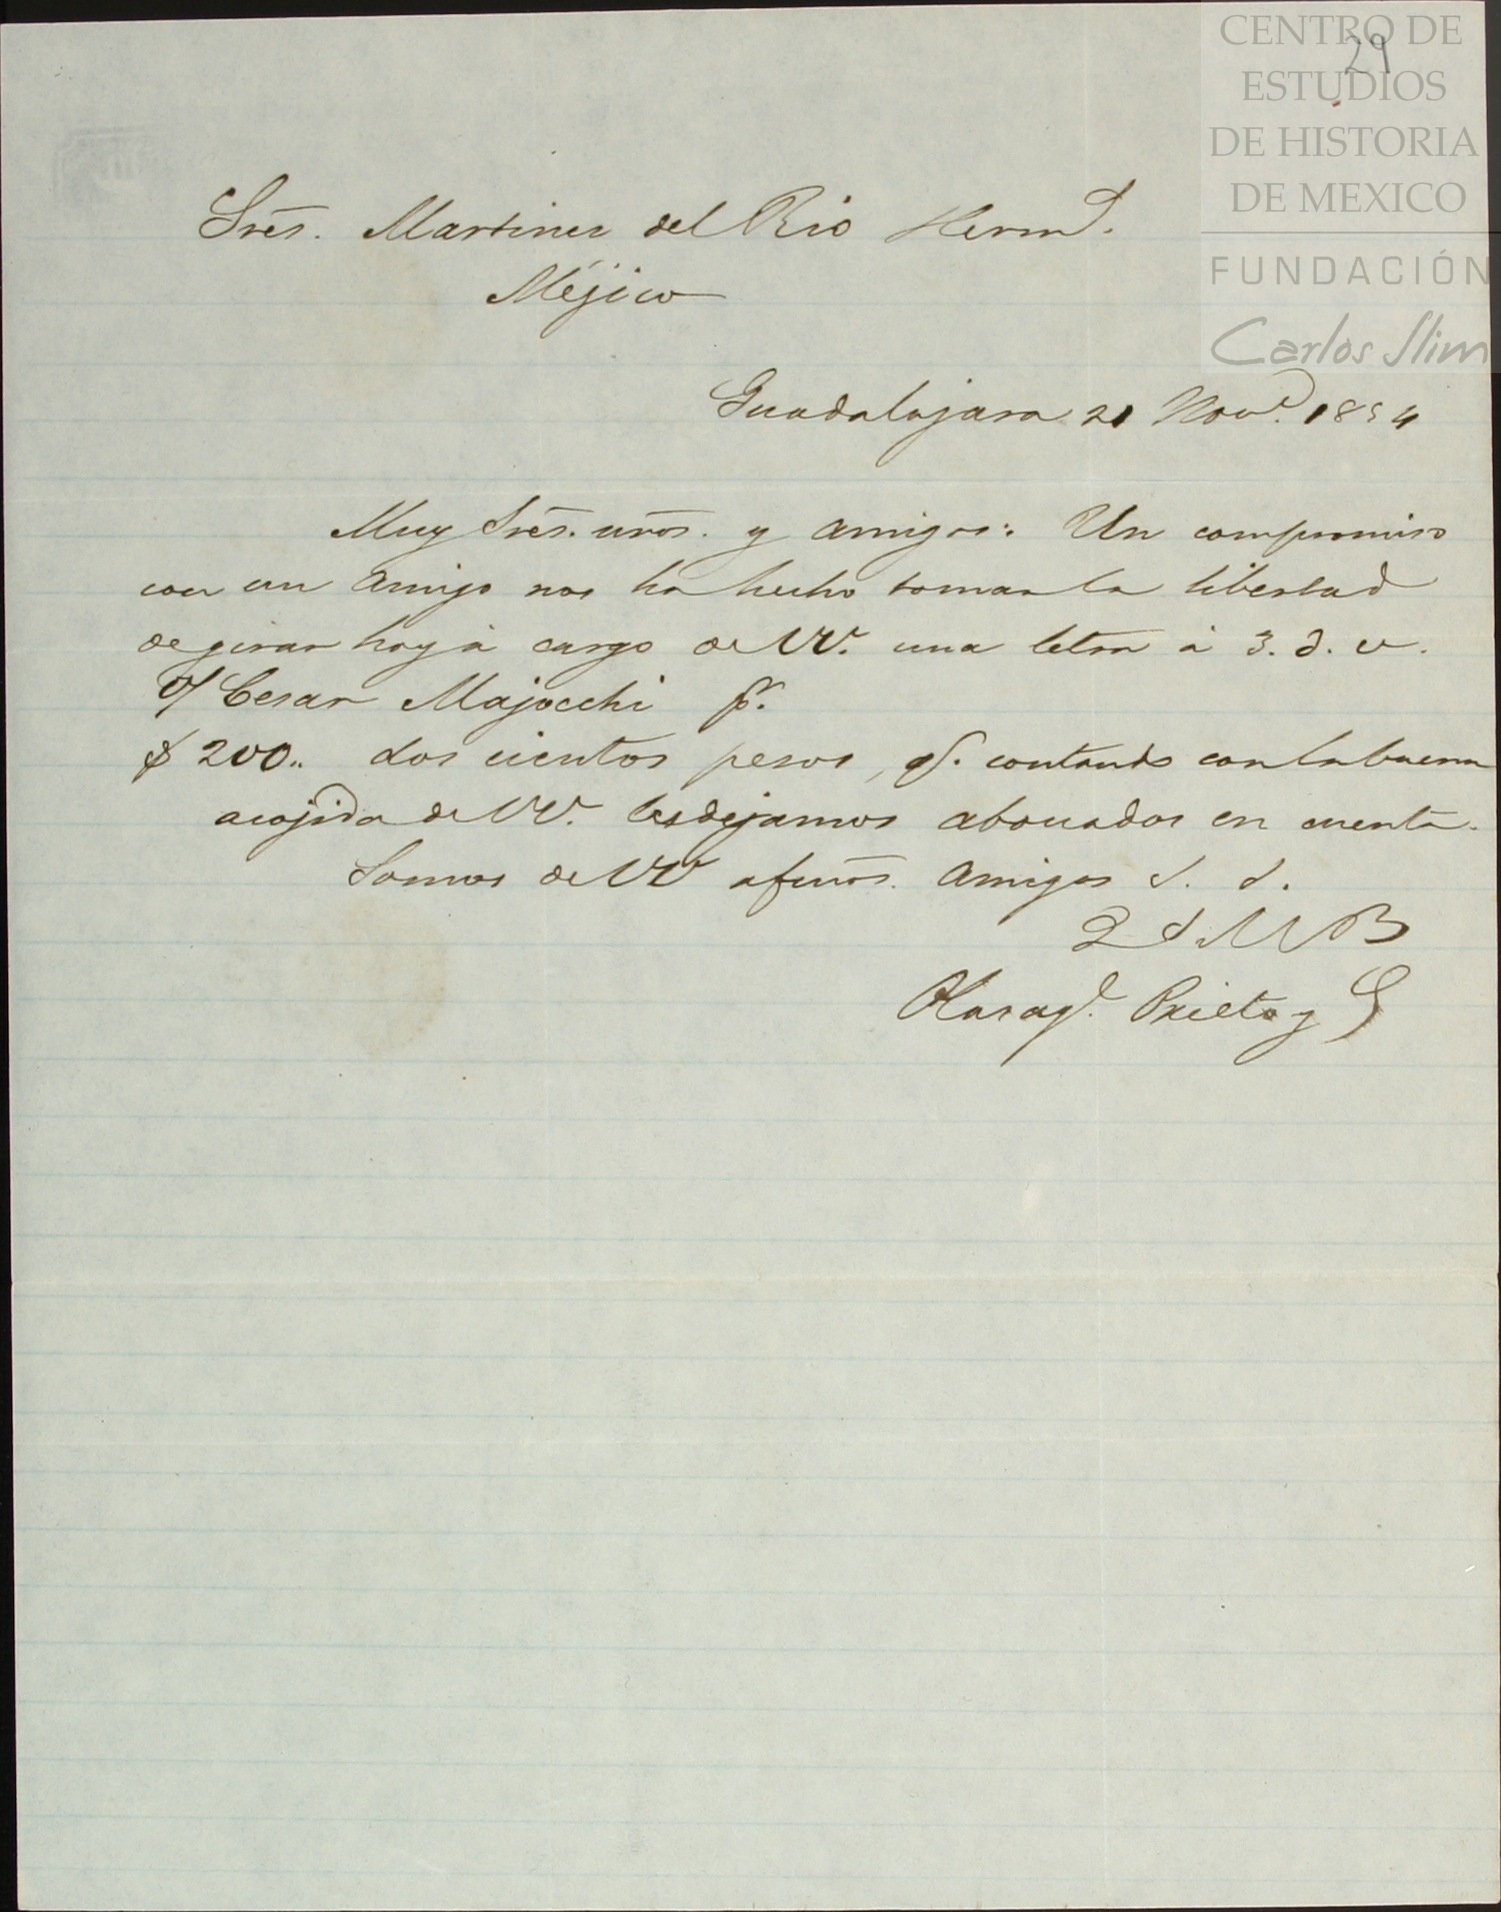 CENTRO DE
ESTUDIOS
DE HISTORIA
DE MEXICO
FUNDACIÓN
Carlos Slim
29
Sres. Martinez del Rio Hermd.
Méjico
Guadalajara 21 Nove. 1854
Muy Sres. nros. y amigos: Un compromiso
con un amigo nos ha hecho tomar la libertad
de girar hoy á cargo de VV. una letra á 3. d. v.
o/ Cesar Majocchi pr.
$ 200.. dos cientos pesos, q. contando con la buena
acojida de VV. les dejamos abonados en cuenta.
Somos de VV afmos. amigos S. S.
Q S M B
Olasag. Prieto y